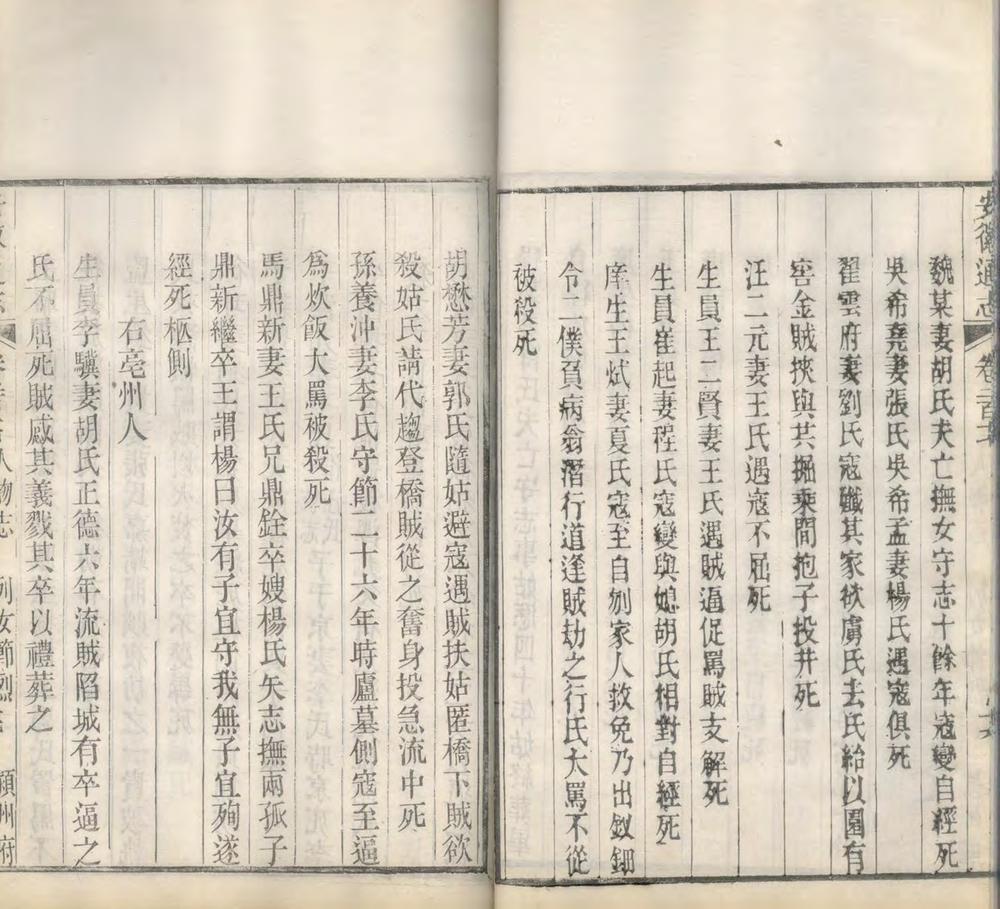 安徽通志
卷二百
魏某妻胡氏夫亡撫女守志十餘年寇變自經死
吳希堯妻張氏吳希孟妻楊氏遇寇俱死
翟雲府妻劉氏寇殲其家欲虜氏去氏給以園有
窖金賊挾與共掘乘間抱子投井死
汪二元妻王氏遇寇不屈死
生員王二賢妻王氏遇賊逼促罵賊支解死
生員崔起妻程氏寇變與媳胡氏相對自經死
庠生王斌妻夏氏寇至自刎家人救免乃出釵鈿
令二僕負病翁潛行道逢賊劫之行氏大罵不從
被殺死
胡懋芳妻郭氏隨姑避寇遇賊扶姑匿橋下賊欲
殺姑氏請代趨登橋賊從之奮身投急流中死
孫養沖妻李氏守節二十六年時廬墓側寇至逼
爲炊飯大罵被殺死
馬鼎新妻王氏兄鼎銓卒嫂楊氏矢志撫兩孤子
鼎新繼卒王謂楊曰汝有子宜守我無子宜殉遂
經死柩側
右亳州人
生員李驥妻胡氏正德六年流賊陷城有卒逼之
氏不屈死賊感其義戮其卒以禮葬之
人物志 列女節烈 潁州府